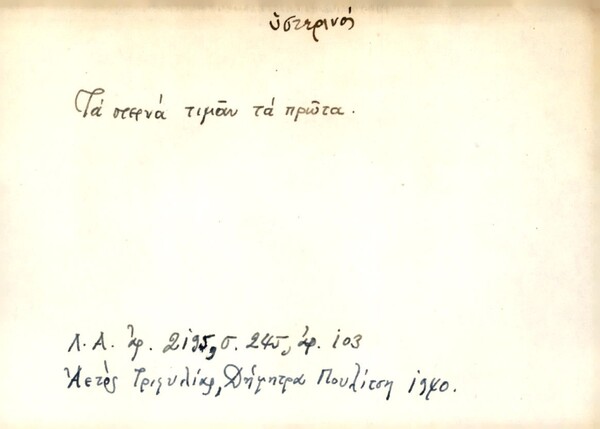 ὑστερινός
Τά στερνά τιμᾶν τά πρῶτα.
Λ. Α. ἀρ. 2195, σ. 245, ἀρ. 103
Ἀετός Τριφυλίας, Δήμητρα Πουλίτση 1940.